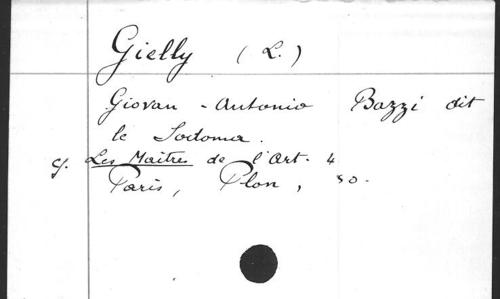 Gielly (L.)
Giovan - Antonio Bazzi dit
le Sodoma.
cf. Les Maîtres de l'Art. 4
Paris, Plon,